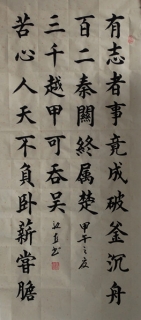 有志者事竟成破釜沉舟
百二秦關終属楚
三千越甲可吞吴
苦心人天不負卧薪嘗膽
甲午之夏